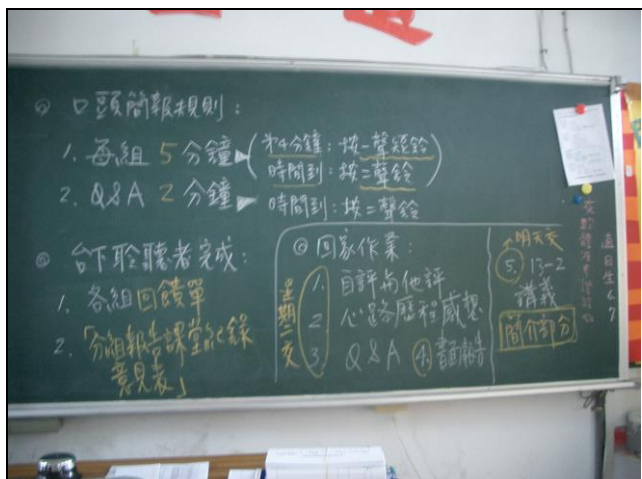 ◎ 口頭簡報規則：
1. 每組 5 分鐘 (第4分鐘：按一聲短鈴
時間到：按二聲鈴)
2. Q&A 2 分鐘 時間到：按二聲鈴
◎ 台下聆聽者完成：
1. 各組回饋單
2. 「分組報告課堂紀錄
意見表」
◎ 回家作業：
星期二交
1. 自評與他評
2. 心路歷程感想
3. Q&A 4. 書面報告
明天交
5. 13-2
講義
簡介部分
值日生 6.7